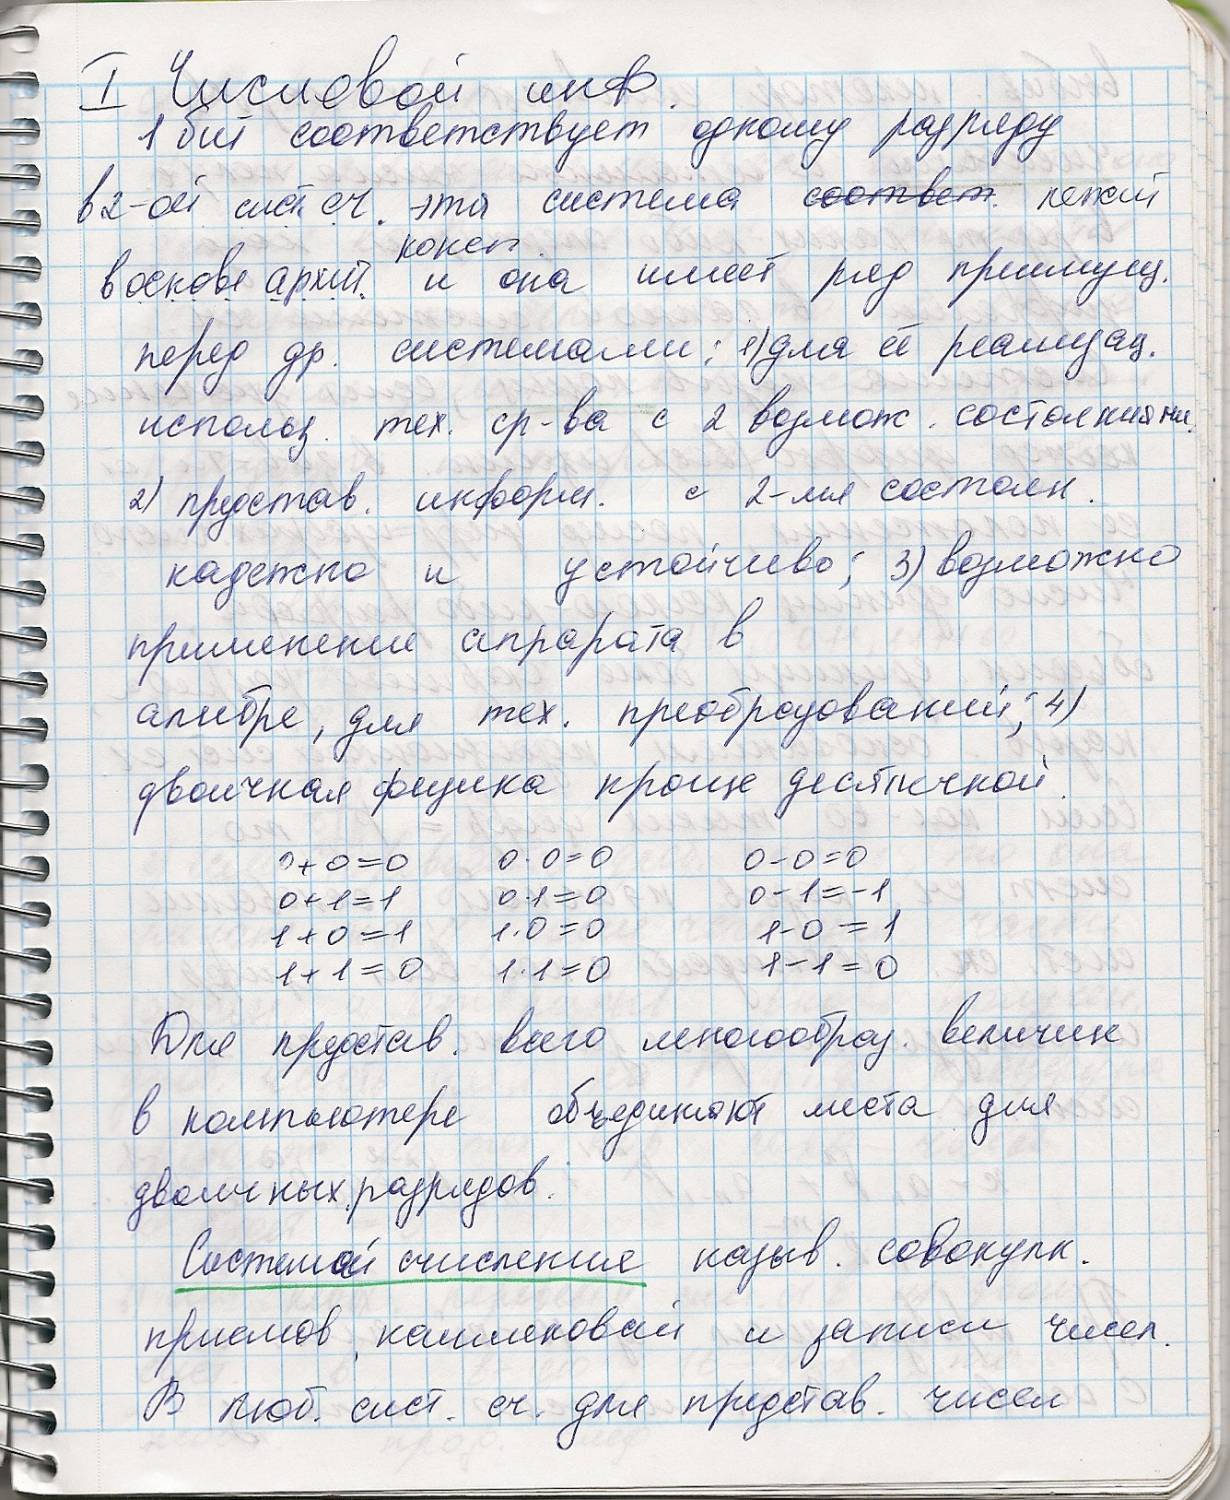 I Числовой инф.
1 бит соответствует одному разряду
в 2-ой сист. сч. эта система соответ. лежит
комп.
в осноове архит. и она имеет ряд преимущ.
перед др. системами: 1) для её реализац.
использ. тех. ср-ва с 2 возмож. состояниями.
2) представ. информ. с 2-мя состоян.
надежно и устойчиво; 3) возможно
применение аппарата в
алгебре, для тех. преобразований; 4)
двоичная физика проще десятичной.
0+0=0 0·0=0 0-0=0
0+1=1 0·1=0 0-1=-1
1+0=1 1·0=0 1-0=1
1+1=0 1·1=0 1-1=0
Для представ. всего многообраз. величин
в компьютере объединяют места для
двоичных разрядов.
Системой счисления назыв. совокупн.
приемов наименований и записи чисел.
В люб. сист. сч. для представ. чисел